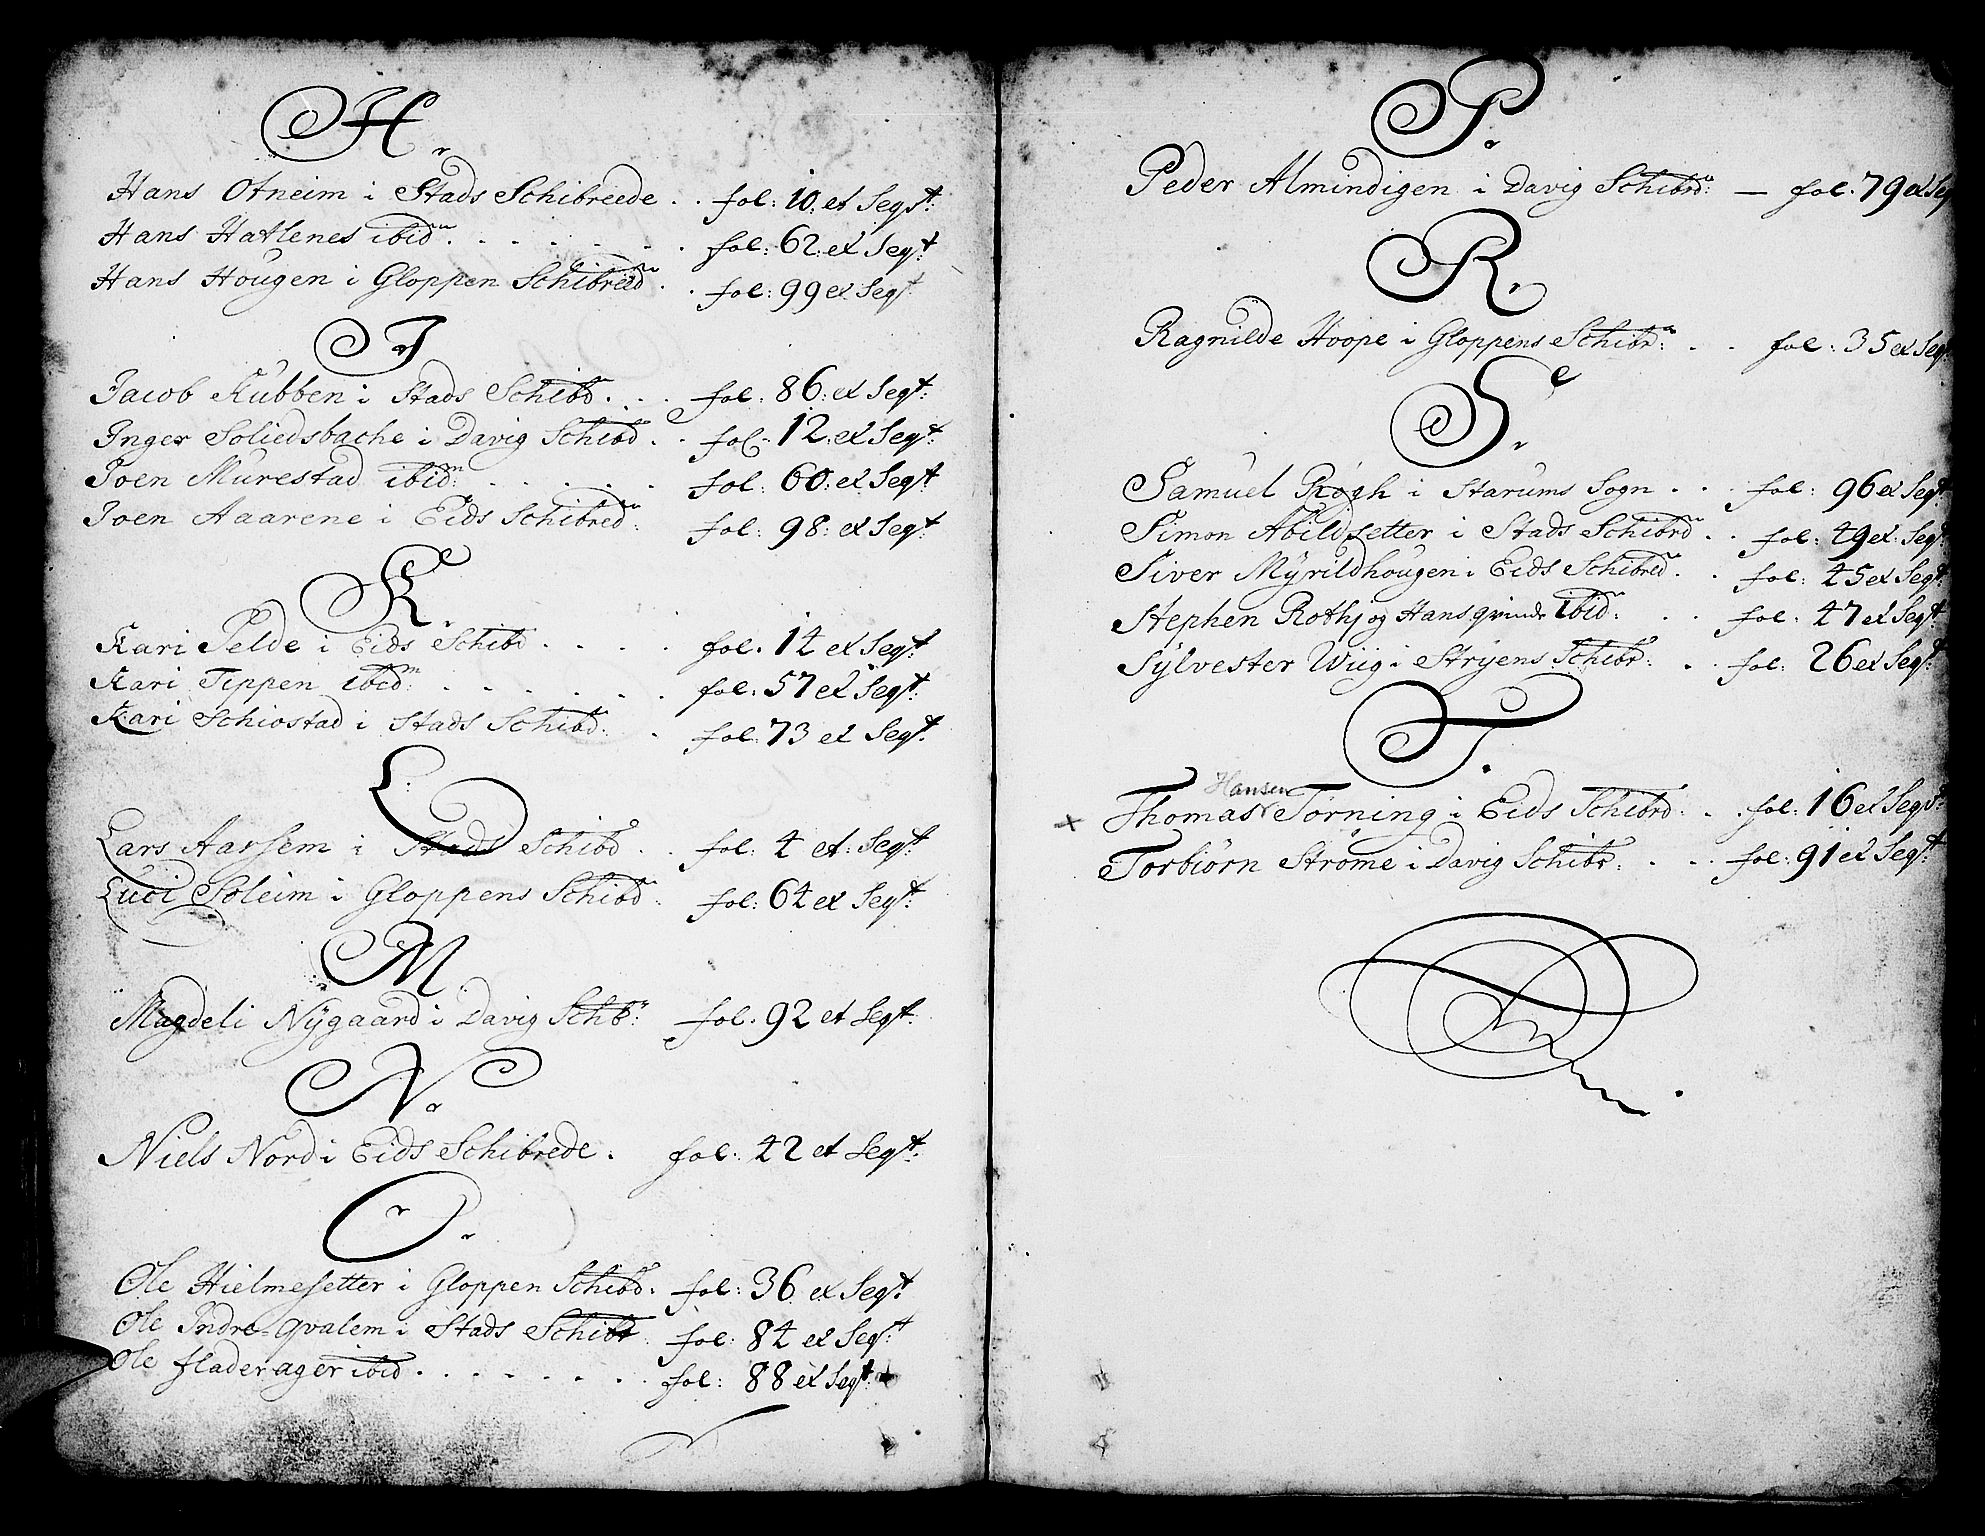 H.
Hans Otneim i Stads Schibreede . . fol: 10. et Seqst:
Hans Hatlenes ibidm. . . . . . . fol: 62: et Seqt
Hans Hougen i Gloppen Schibreed . . fol: 99 et Seqt
J
Jacob Kubben i Stads Schibd. . . . fol: 86: et Seqt:
Inger Soliedsbache i Davig Schibd . . fol: 12. et Seqt:
Joen Murestad ibidm: . . . . . fol: 60: et Seqt
Joen Aaarene i Eids Schibred: fol: 98: et Seqt
K.
Kari Pelde i Eids Schibd . . . . fol. 14 et Seqt:
Kari Teppen ibidm: . . . . . . fol: 57 et Seqt:
Kari Schiostad i Stads Schibd: . fol: 73 et Seqt:
L:
Lars Aarsem i Stads Schibd . . fol: 4 et: Seqt:
Luci Soleim i Gloppens Schibd: fol: 64 et Seqt:
M
Magdeli Nÿgaard i Davig Schb: fol. 92 et Seqt:
N.
Niels Nord i Eids Schibrede . fol: 42 et Seqt:
O.
Ole Hielmesetter i Gloppen Schibd. fol: 36 et Seqt:
Ole Indre-qvalem i Stads Schibr fol: 84 et Seqt:
Ole fladerager ibid . . . . . . . fol: 88 et Seqt:
P.
Peder Almindigen i Davig Schibrd: — fol. 79 et Seq
R.
Ragnilde Hoope i Gloppens Schibr: . . fol: 35 et Seqt
S.
Samuel Krogh i Starums Sogn . . . fol: 96 et Seqt
Simon Abildsetter i Stads Schibrd . . fol: 49 et: Seqt
Siver Mÿrildhougen i Eids Schibred. . fol: 45 et Seqt:
Stephen Rothj og Hans qvinde ibid: . . fol: 47 et Seqt:
Sÿlvester Wiig i Strÿens Schibr: . . fol: 26 et Seqt:
T.
Hansen
x Thomas Tørning i Eids Schibrd . . . fol: 16 et Seqst:
Torbiørn Strøme i Davig Schibr: . . . fol: 91 et Seqt: